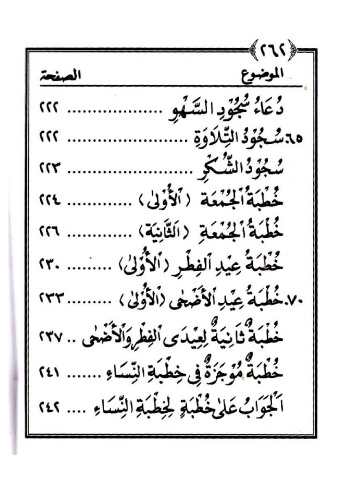 ﴿٢٦٢﴾
الموضوع الصفحة
دُعَاءُ سُجُودِ السَّهْوِ .................... ٢٢٢
٦٥. سُجُودُ التِّلَاوَةِ .................... ٢٢٢
سُجُودُ الشُّكْرِ .................... ٢٢٣
خُطْبَةُ الْجُمْعَةِ (الْأُوْلَى) .............. ٢٢٤
خُطْبَةُ الْجُمْعَةِ (الثَّانِيَة) ............ ٢٢٦
خُطْبَةُ عِيْدِ الْفِطْرِ (الْأُوْلَى) .......... ٢٣٠
٧٠. خُطْبَةُ عِيْدِ الْأَضْحَى (الْأُوْلَى) .......... ٢٣٣
خُطْبَةٌ ثَانِيَةٌ لِعِيْدَى الْفِطْرِ وَالْأَضْحَى .. ٢٣٧
خُطْبَةٌ مُوْجَزَةٌ فِى خِطْبَةِ النِّسَاءِ ....... ٢٤١
الْجَوَابُ عَلَى خُطْبَةٍ لِخِطْبَةِ النِّسَاءِ .... ٢٤٢